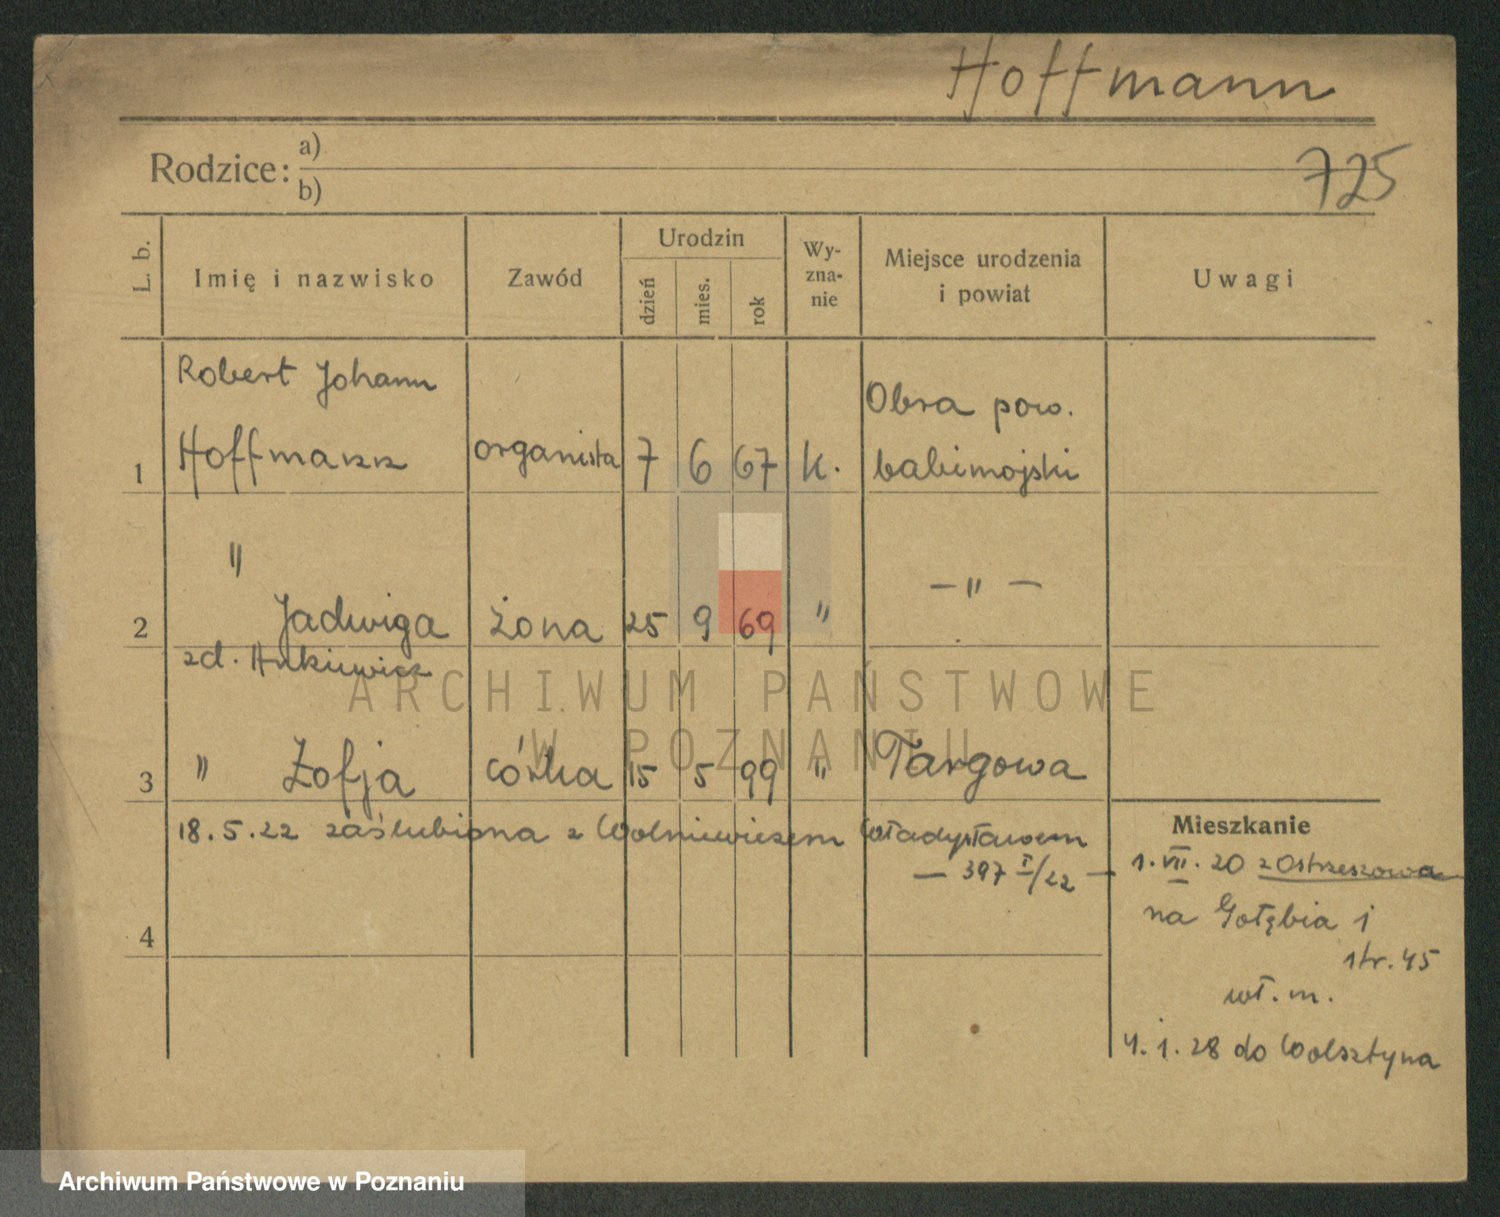 Hoffmann
Rodzice: a)
b)
725
L. b.
Imię i nazwisko
Zawód
Urodzin
dzień
mies.
rok
Wy-
zna-
nie
Miejsce urodzenia
i powiat
Uwagi
Robert Johann
1 Hoffmann organista 7 6 67 k. Obra pow.
babimojski
"
2 Jadwiga żona 25 9 69 " — " —
zd.
3 " Zofja córka 15 5 99 " Targowa
18.5.22 zaślubiona z Wolniewiczem Władysławem
— 397 I/22 —
4
Mieszkanie
1. VII. 20 z Ostrzeszowa
na Gołębia 1
str. 45
wł. m.
4. 1. 28 do Wolsztyna
ARCHIWUM PAŃSTWOWE
W POZNANIU
Archiwum Państwowe w Poznaniu